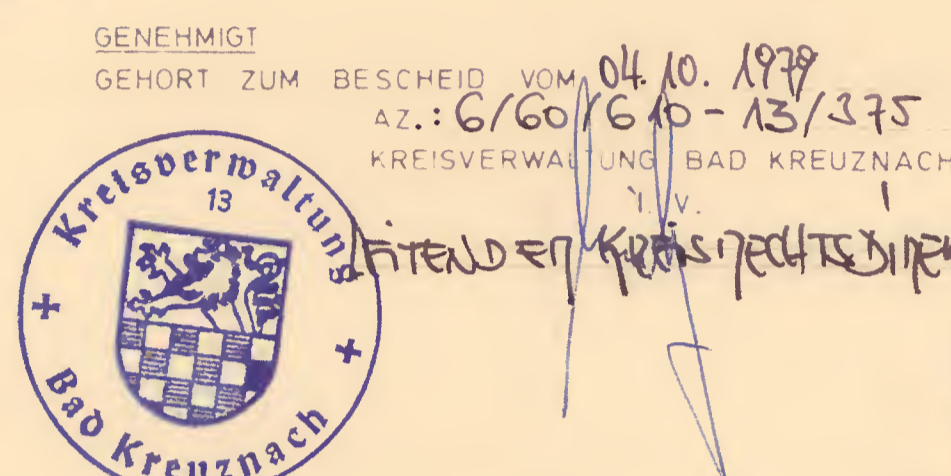 GENEHMIGT
GEHÖRT ZUM BESCHEID VOM 04.10.1979
AZ.: 6/60/610-13/375
KREISVERWALTUNG BAD KREUZNACH
I. V.
LEITENDER KREISRECHTSDIREK
Kreisverwaltung
13
Bad Kreuznach